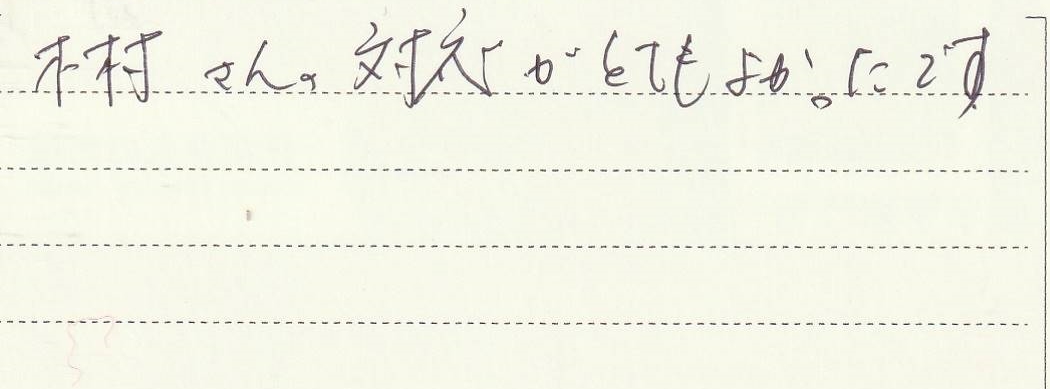 木村さんの対応がとてもよかったです